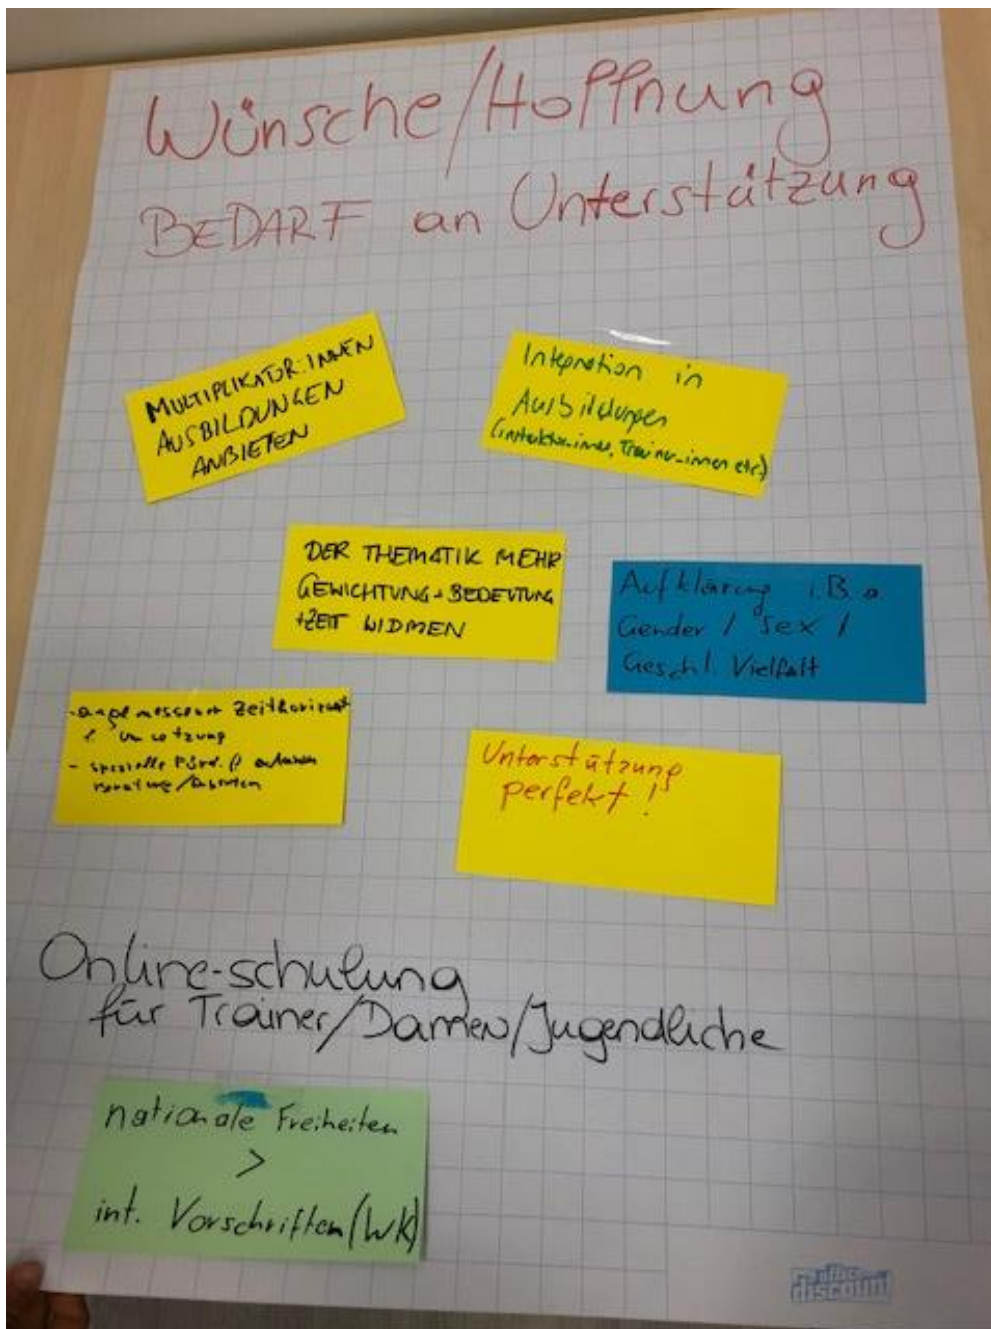 Wünsche/Hoffnung
BEDARF an Unterstützung
MULTIPLIKATOR:INNEN
AUSBILDUNGEN
ANBIETEN
Integration in
Ausbildungen
(Instruktor_innen, Trainer_innen etc.)
DER THEMATIK MEHR
GEWICHTUNG + BEDEUTUNG
+ZEIT WIDMEN
Aufklärung i.B.a.
Gender / Sex /
Geschl. Vielfalt
- angemessener Zeithorizont
f. Umsetzung
- spezielle
Unterstützung
perfekt!
Online-schulung
für Trainer/Damen/Jugendliche
nationale Freiheiten
>
int. Vorschriften (WK)
office
discount